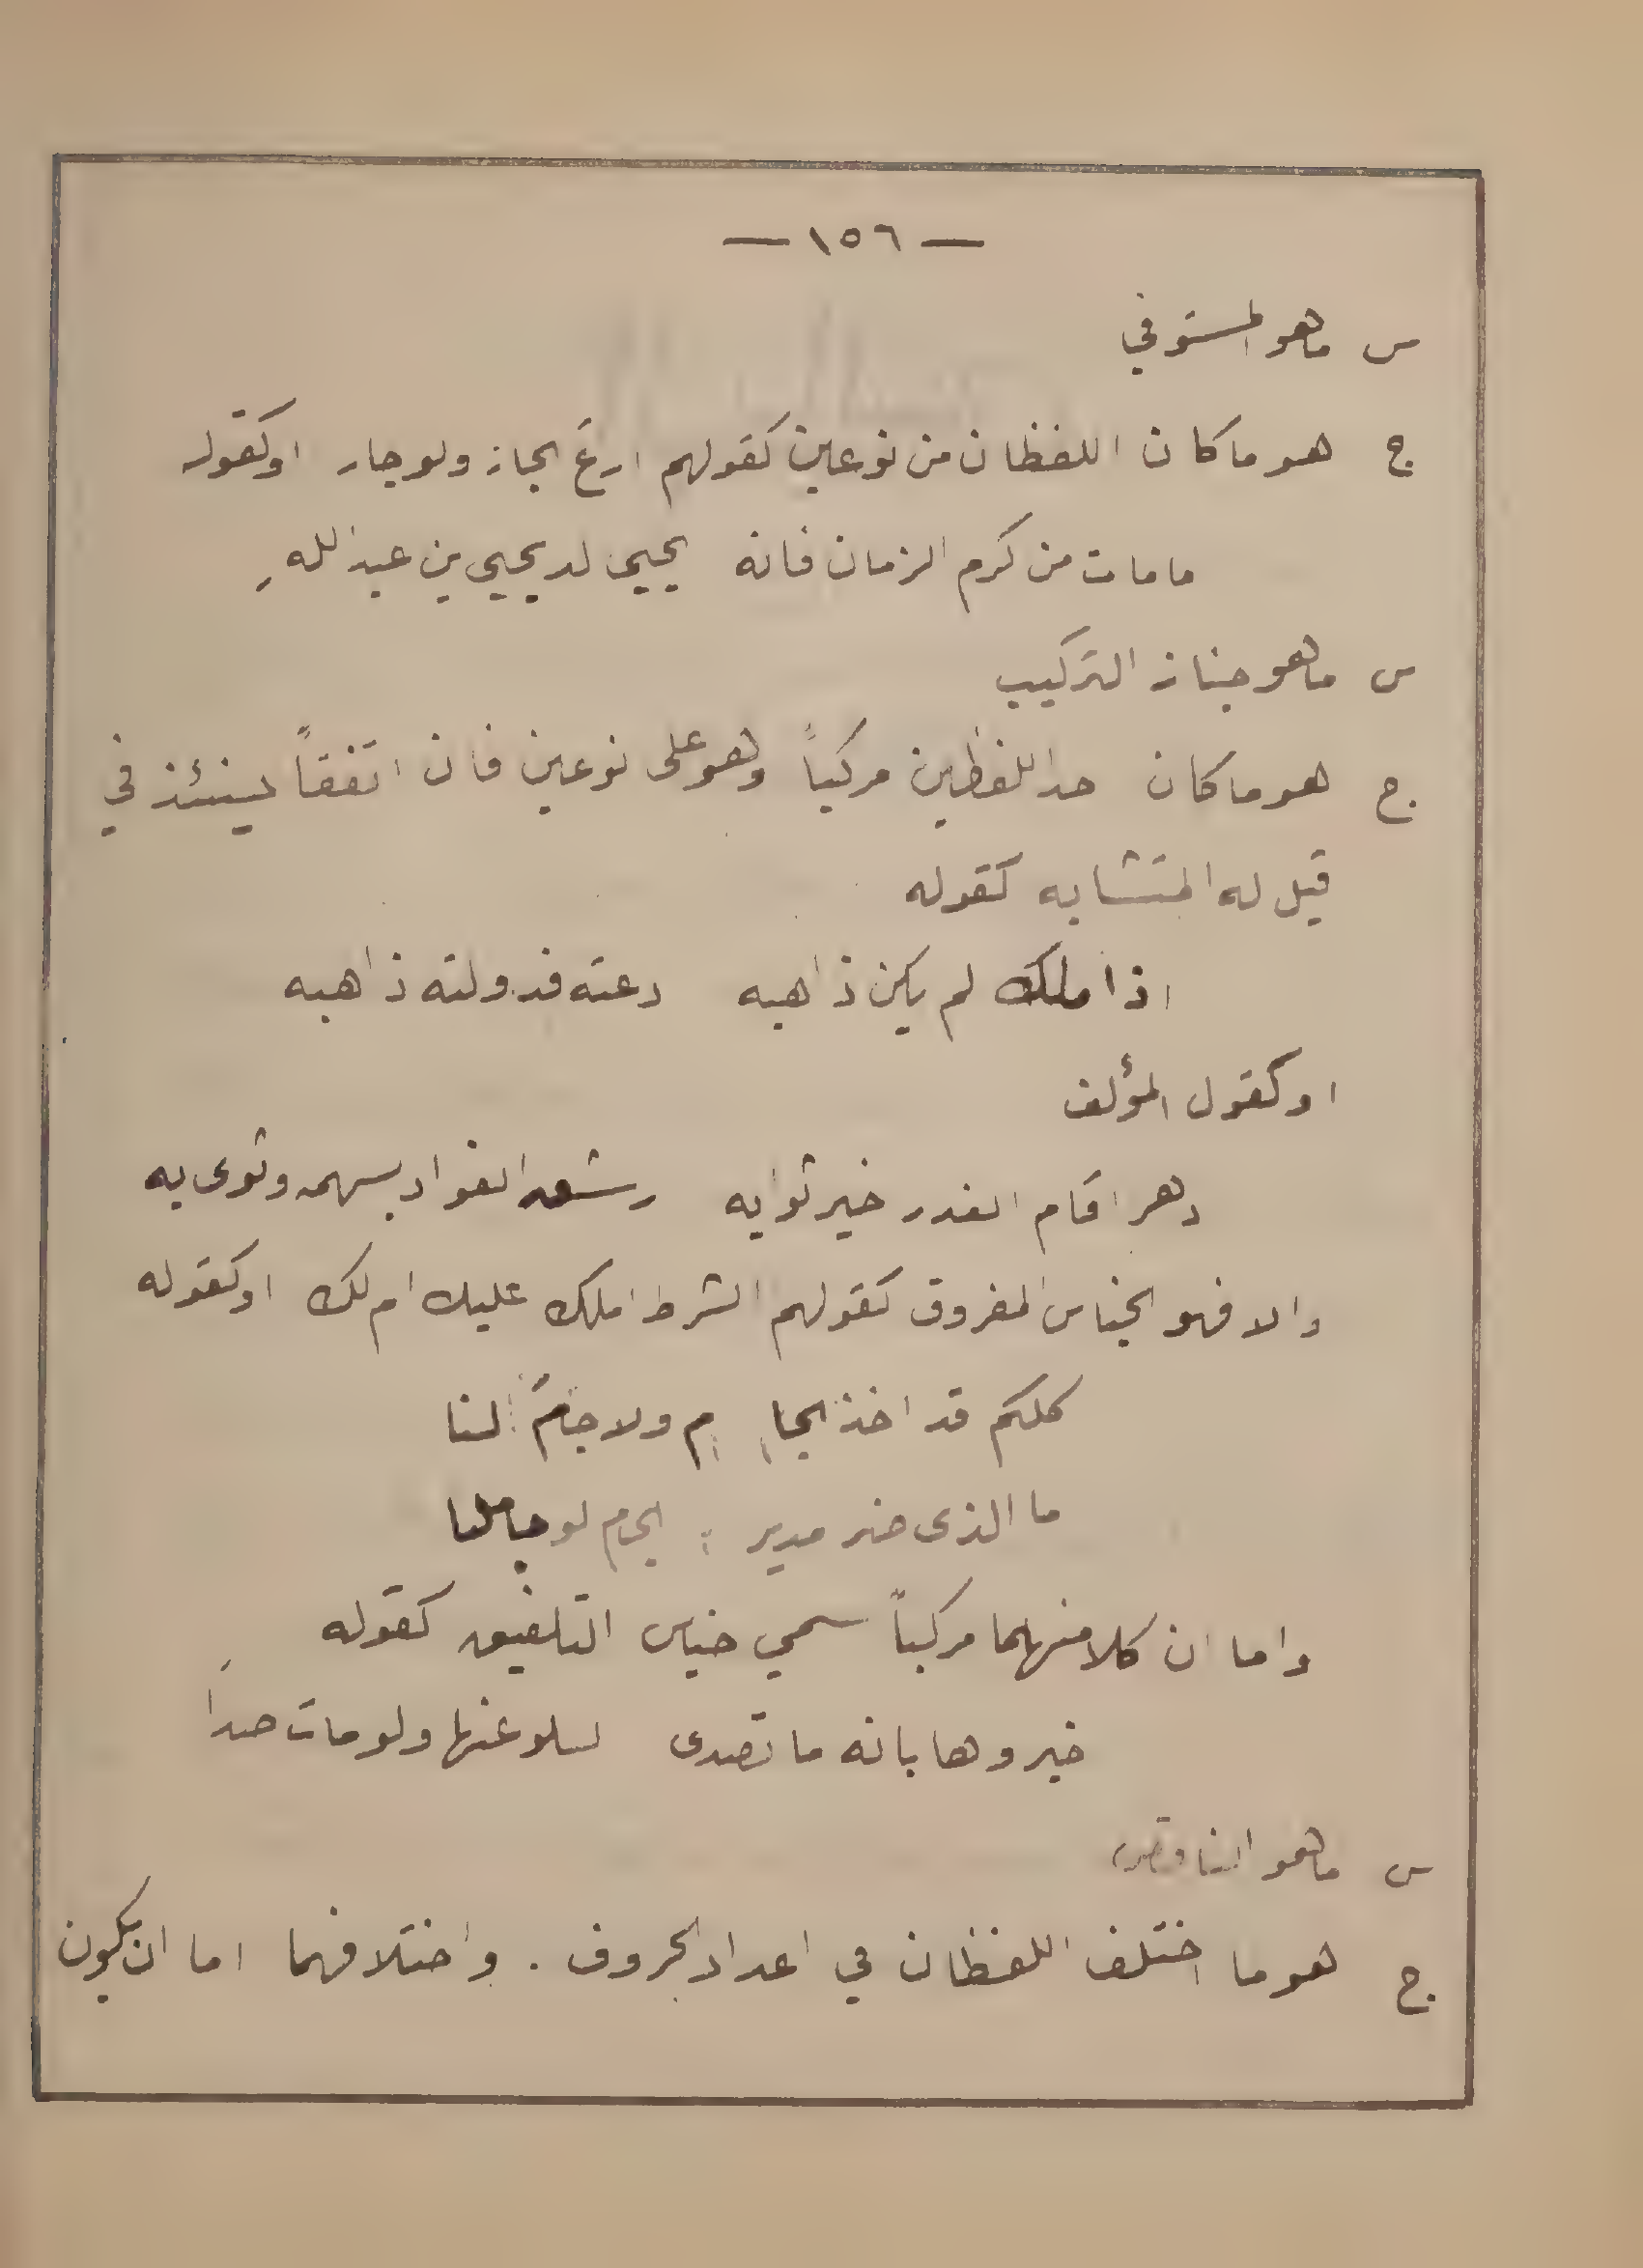 — ١٥٦ —
س ماهو المستوفي
ج هو ما كان اللفظان من نوعين كقولهم ارعَ الجار ولو جار او كقوله
ما مات من كرم الزمان فانه يحيى لد يحيي بن عبد الله
س ماهو جناس التركيب
ج هو ما كان حد اللفظين مركباً وهو على نوعين فان اتفقاً في
قيل له المتشابه كقوله
اذا ملك لم يكن ذا هبه دعته فدولته ذاهبه
او كقول المؤلف
دهر اقام الغدر خير ثوابه الفواد بسهمه وثوى به
والا فهو الجناس المفروق كقولهم الشرط املك عليك ام لك او كقوله
كلكم قد اخذ الجا م ولا جامَ لنا
ما الذى ضر مدير الجام لو جاملنا
واما ان كلا منهما مركباً سمي جناس التلفيق كقوله
خبروها بانه ما تصدى لسلو عنها ولو مات صدا
س ماهو الناقص
ج هو ما اختلف اللفظان في اعداد الحروف . واختلافهما اما ان يكون